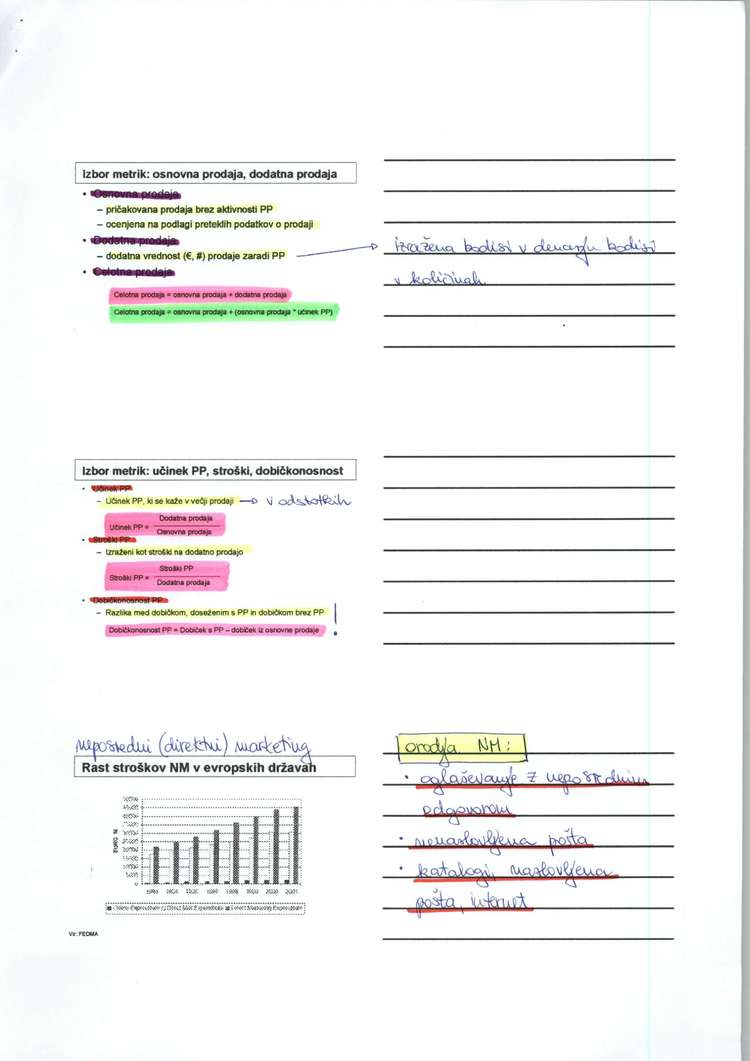 Izbor metrik: osnovna prodaja, dodatna prodaja
• Osnovna prodaja
– pričakovana prodaja brez aktivnosti PP
– ocenjena na podlagi preteklih podatkov o prodaji
• Dodatna prodaja
– dodatna vrednost (€, #) prodaje zaradi PP
izražena bodisi v denarju bodisi
v količinah.
• Celotna prodaja
Celotna prodaja = osnovna prodaja + dodatna prodaja
Celotna prodaja = osnovna prodaja + (osnovna prodaja * učinek PP)
Izbor metrik: učinek PP, stroški, dobičkonosnost
• Učinek PP
– Učinek PP, ki se kaže v večji prodaji → v odstotkih
Dodatna prodaja
Učinek PP =
Osnovna prodaja
• Stroški PP
– Izraženi kot stroški na dodatno prodajo
Stroški PP
Stroški PP =
Dodatna prodaja
• Dobičkonosnost PP
– Razlika med dobičkom, doseženim s PP in dobičkom brez PP !
Dobičkonosnost PP = Dobiček s PP – dobiček iz osnovne prodaje
neposredni (direktni) marketing
Rast stroškov NM v evropskih državah
Vir: FEDMA
orodja NM:
• oglaševanje z neposrednim
odgovorom
• nenaslovljena pošta
• katalogi, naslovljena
pošta, internet